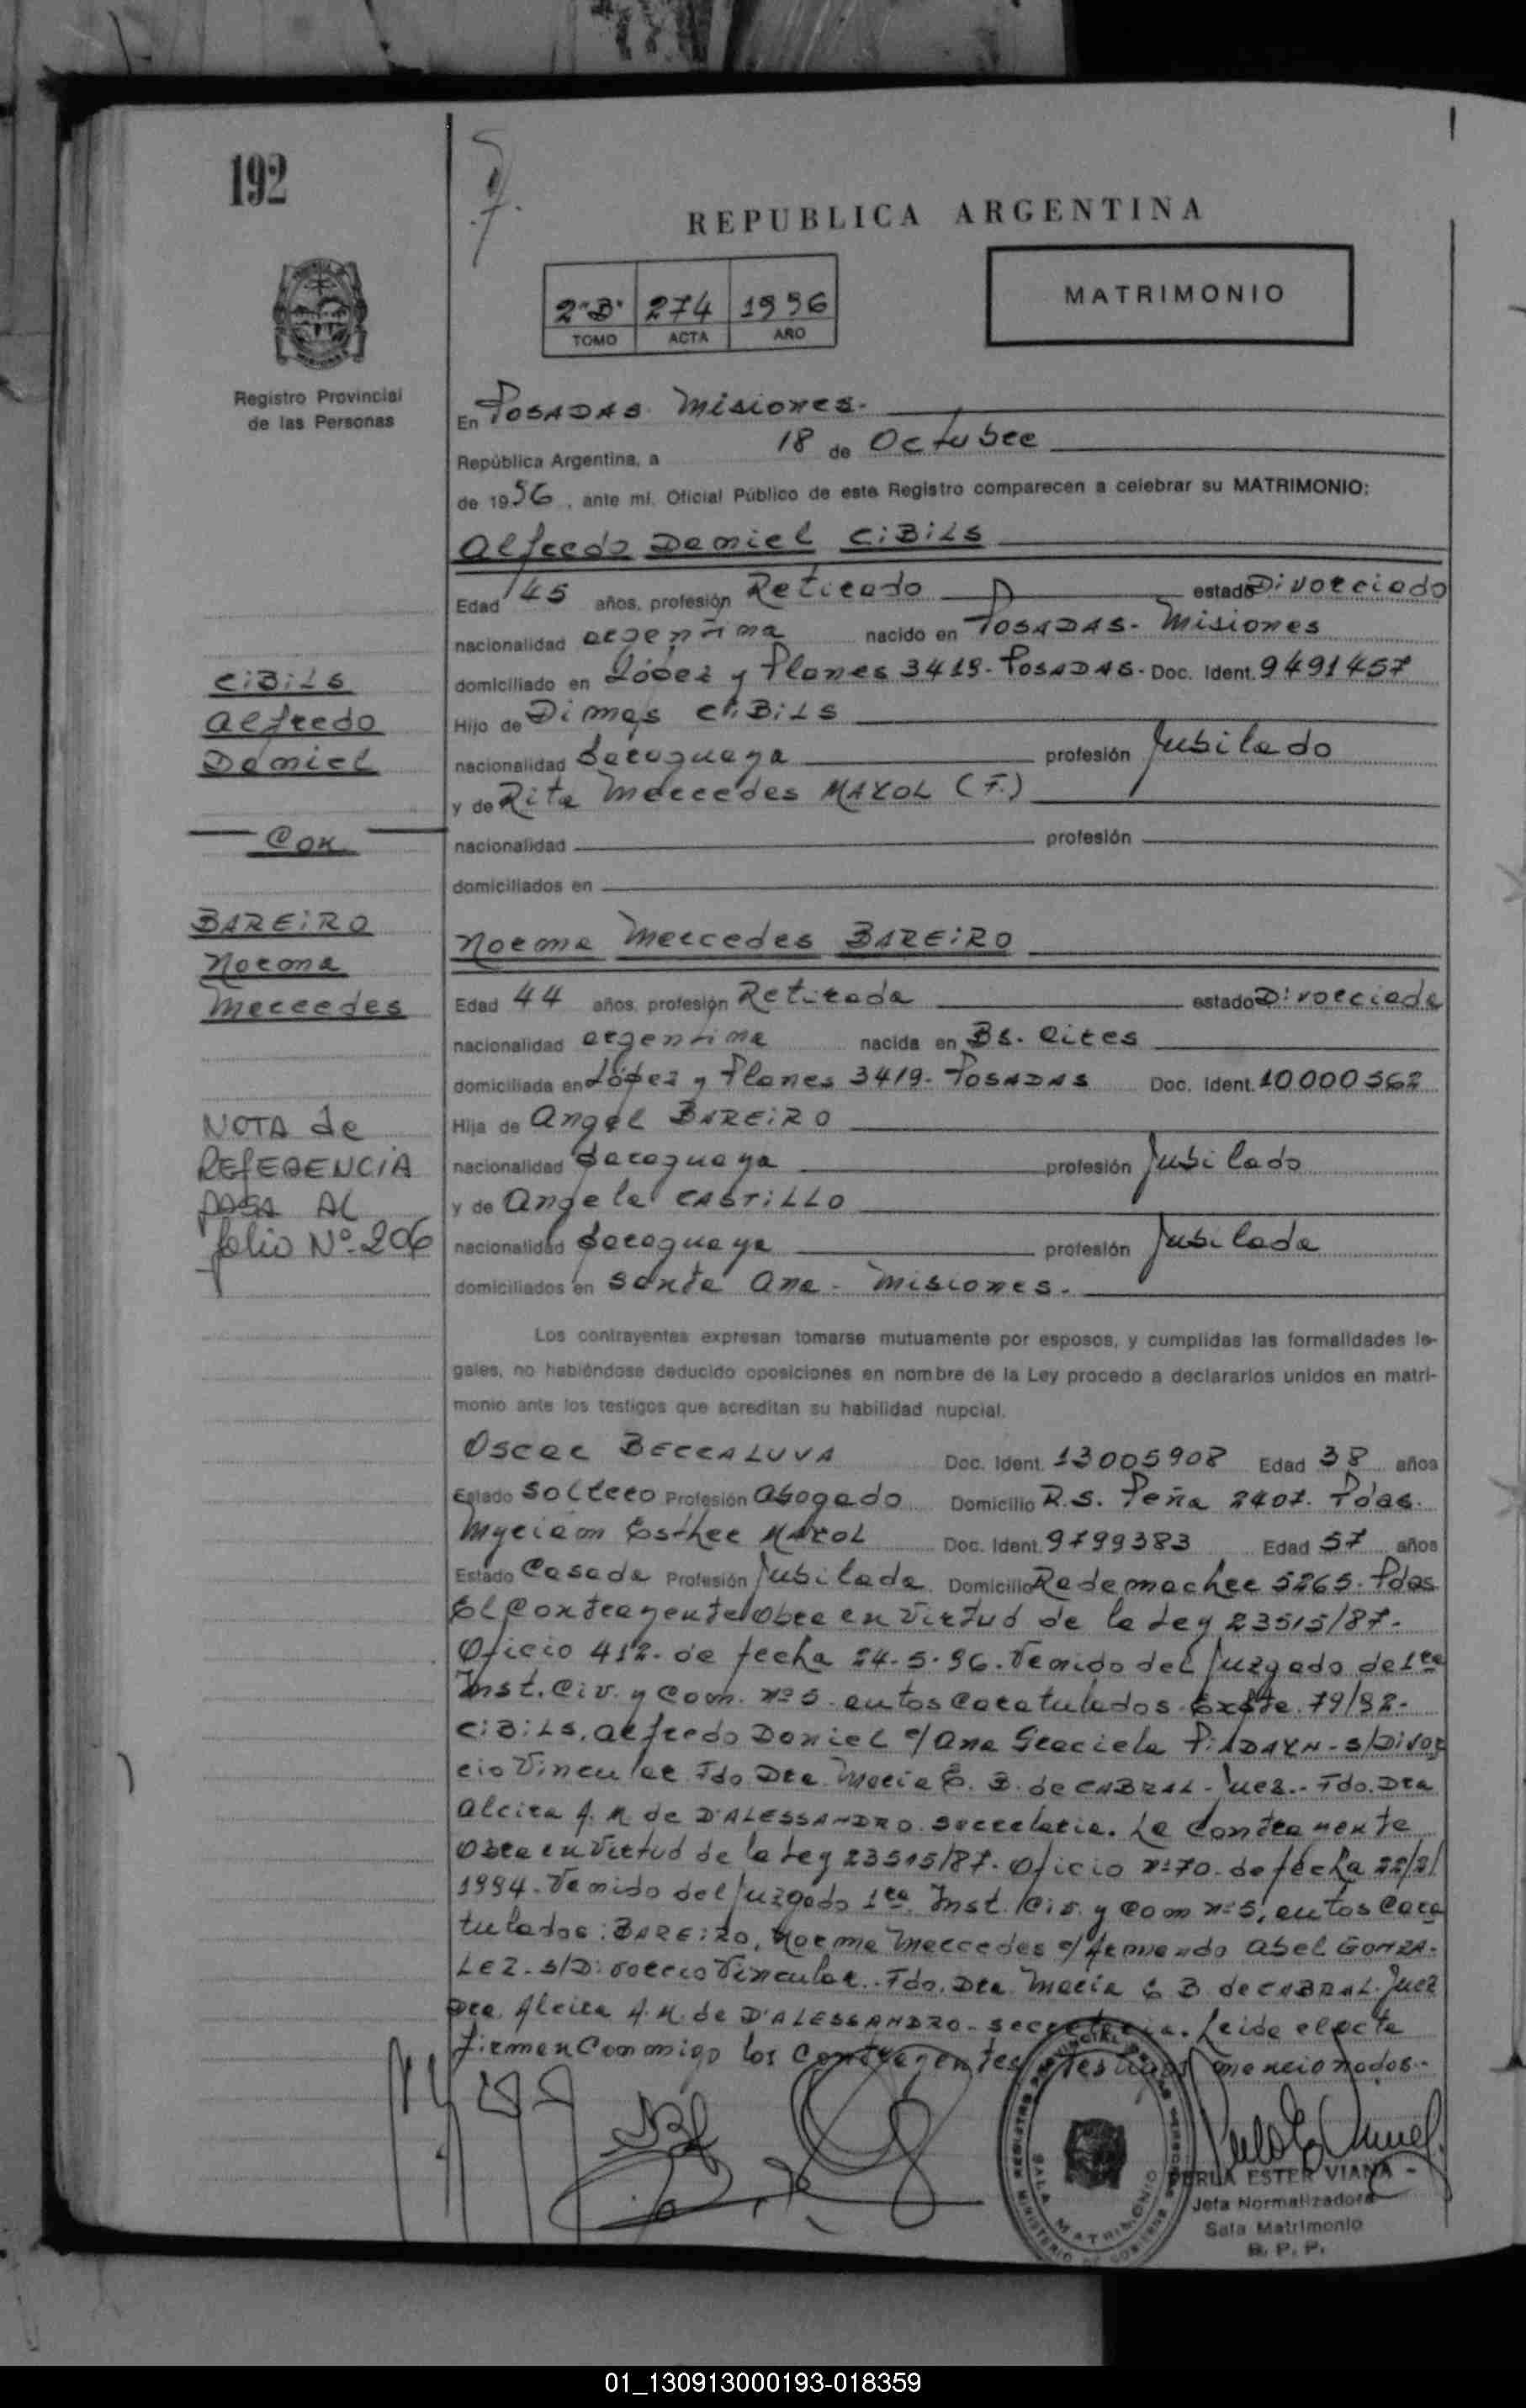 192
REPUBLICA ARGENTINA
2"B" 274 1996
TOMO ACTA AÑO
MATRIMONIO
Registro Provincial
de las Personas
En POSADAS. Misiones.
República Argentina, a 18 de Octubre
de 1996, ante mí, Oficial Público de este Registro comparecen a celebrar su MATRIMONIO:
Alfredo Daniel CIBILS
Edad 45 años, profesión Retirado estado Divorciado
nacionalidad argentina nacido en POSADAS- Misiones
domiciliado en López y Planes 3419- POSADAS- Doc. Ident. 9491457
Hijo de Dimas CIBILS
nacionalidad paraguaya profesión Jubilado
y de Rita Mercedes MAYOL (F.)
nacionalidad profesión
domiciliados en
CIBILS
Alfredo
Daniel
Con
BAREIRO
Norma
Mercedes
Norma Mercedes BAREIRO
Edad 44 años, profesión Retirada estado Divorciada
nacionalidad argentina nacida en Bs. Aires
domiciliada en López y Planes 3419- POSADAS Doc. Ident. 10000562
Hija de Angel BAREIRO
nacionalidad paraguaya profesión Jubilado
y de Angela CASTILLO
nacionalidad paraguaya profesión Jubilada
domiciliados en Santa Ana - Misiones.
NOTA de
REFERENCIA
PASA AL
folio Nº 206
Los contrayentes expresan tomarse mutuamente por esposos, y cumplidas las formalidades le-
gales, no habiéndose deducido oposiciones en nombre de la Ley procedo a declararlos unidos en matri-
monio ante los testigos que acreditan su habilidad nupcial.
Oscar BECCALUVA Doc. Ident. 13005908 Edad 38 años
Estado Soltero Profesión Abogado Domicilio R.S. Peña 2407. Pdas.
Myriam Esther MAYOL Doc. Ident. 9799383 Edad 57 años
Estado Casada Profesión Jubilada. Domicilio Rademacher 5265. Pdas
El Contrayente obra en Virtud de la Ley 23515/87.
Oficio 412. de fecha 24.5.96. Venido del Juzgado de 1ra
Inst. Civ. y Com. nº 5 autos Caratulados Expte. 79/92-
CIBILS, Alfredo Daniel c/ Ana Graciela - s/Divor
cio Vincular Fdo Dra. María E. B. de CABRAL - Juez.- Fdo. Dra
Alcira A. M. de D'ALESSANDRO Secretaria. La Contrayente
Obra en Virtud de la Ley 23515/87. Oficio nº 70. de fecha 22/2/
1994. Venido del Juzgado 1ra Inst. Civ. y Com nº 5, autos Cara
tulados: BAREIRO, Norma Mercedes c/ Armando Abel GONZA-
LEZ. s/Divorcio Vincular. Fdo. Dra. María E B. de CABRAL. Juez
Dra. Alcira A. M. de D'ALESSANDRO - Secretaria. Leida el acta
firman Conmigo los Contrayentes y testigos mencionados.-
REGISTRO PROVINCIAL DE LAS PERSONAS
SALA MATRIMONIO
MINISTERIO DE GOBIERNO
PERLA ESTER VIANA -
Jefa Normalizadora
Sala Matrimonio
R. P. P.
01_130913000193-018359